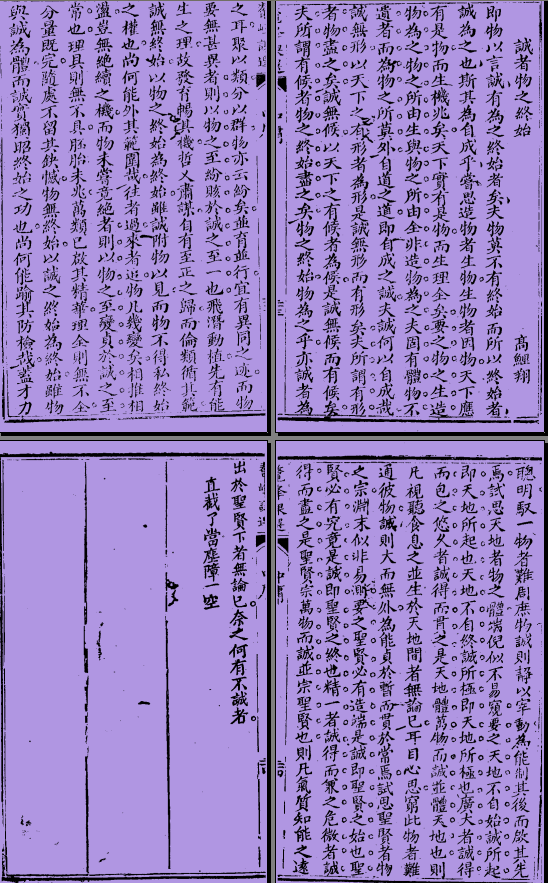 誠者物之終始
高鯉翔
即物以言誠有為之終始者矣夫物莫不有終始而所以終始者
誠為之也斯其為自成乎嘗思造物者生物生物者因物天下應
有是物而生機兆矣天下實有是物而生理全矣要之物之生造
物為之物之所由生與物之所由全非造物為之夫固有體物不
遺者而為物之所莫外自道之道即自成之誠夫誠何以自成哉
誠無形以天下之有形者為形是誠無形而有形矣夫所謂有形
者物盡之矣誠無候以天下之有候者為候是誠無候而有候矣
夫所謂有候者物之終始盡之矣物之終始物為之乎亦誠者為
之耳聚以類分以群物亦云紛矣並育並行宜有異同之迹而物
要無甚異者則以物之至紛賅於誠之至一也飛潛動植先有能
生之理故發育暢其機哲乂肅謀自有至正之歸而倫類循其範
誠無終始以物之終始為終始雖誠附物以見而物不得私終始
之權也尚何能外其範圍哉往者過來者逅物凡幾變矣相推相
盪豈無絶續之機而物未嘗竟絶者則以物之至發貞於誠之至
常也理具則無不具胚胎未兆萬類已啟其精華理全則無不全
分量既完隨處不留其缺憾物無終始以誠之終始為終始雖物
與誠為體而誠實獨昭終始之功也尚何能踰其防檢哉蓋才力
聰明馭一物者難周庶物誠則靜以宰動為能制其後而啟其先
焉試思天地者物之體端倪似不易窺要之天地不自始誠所起
即天地所起也天地不自終誠所極即天地所極也廣大者誠得
而包之悠久者誠得而貫之是天地體萬物而誠並體天地也則
凡視聽食息之並生於天地間者無論已耳目心思窮此物者難
通彼物誠則大而無外為能貞於暫而貫於常焉試思聖賢者物
之宗淵末似非易測要之聖賢必有造端是誠即聖賢之始也聖
賢必有究竟是誠即聖賢之終也精一者誠得而兼之危微者誠
得而盡之是聖賢宗萬物而誠並宗聖賢也則凡氣質知能之遠
出於聖賢下者無論已奈之何有不誠者
直截了當塵障一空